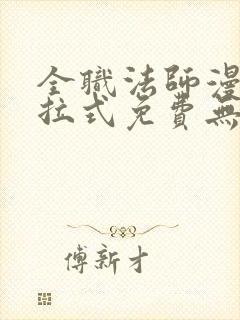 全職法師漫
拉式免費無
傅新才